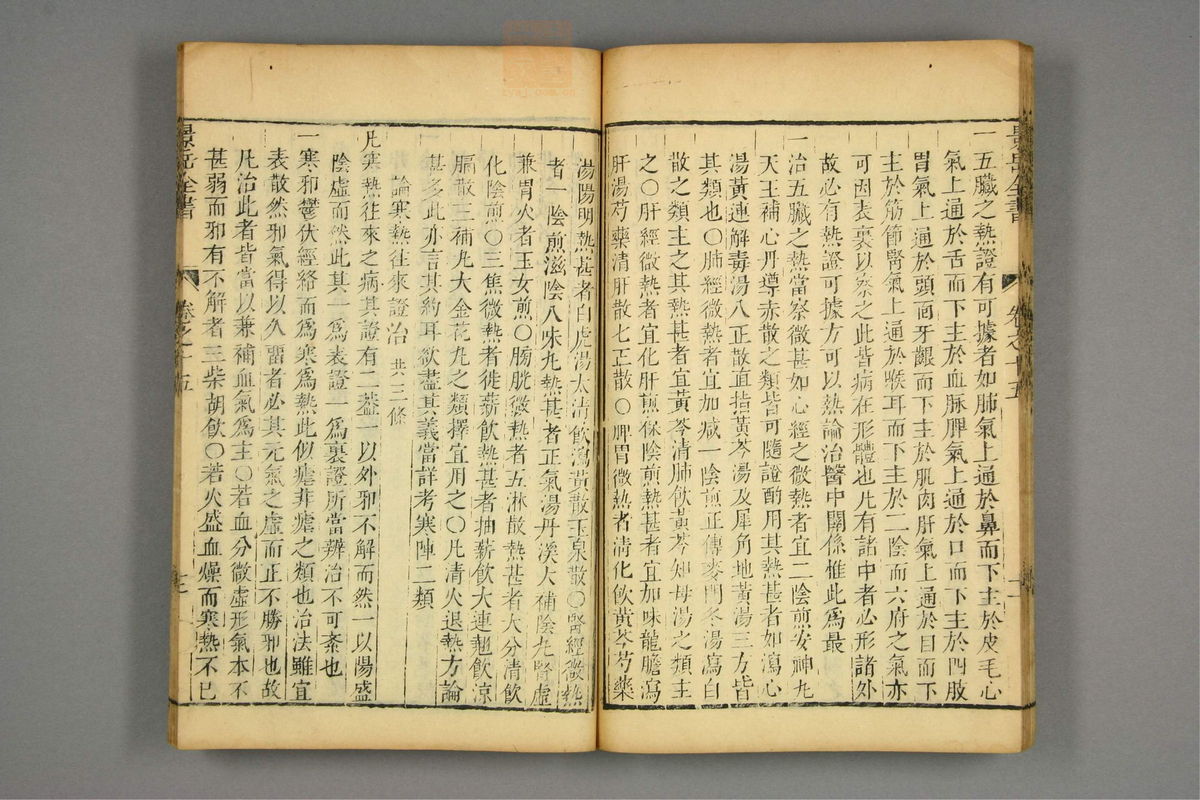 景岳全書
卷之十五
一五臟之熱證有可據者如肺氣上通於鼻而下主於皮毛心
氣上通於舌而下主於血脉脾氣上通於口而下主於四肢
胃氣上通於頭面牙齦而下主於肌肉肝氣上通於目而下
主於筋節腎氣上通於喉耳而下主於二陰而六府之氣亦
可因表裏以察之此皆病在形體也凡有諸中者必形諸外
故必有熱證可據方可以熱論治醫中關係惟此爲最
一治五臟之熱當察微甚如心經之微熱者宜二陰煎安神丸
天王補心丹導赤散之類皆可隨證酌用其熱甚者如瀉心
湯黃連解毒湯八正散直指黃芩湯及犀角地黃湯三方皆
其類也〇肺經微熱者宜加减一陰煎正傳麥門冬湯瀉白
散之類主之其熱甚者宜黃芩清肺飲黃芩知母湯之類主
之〇肝經微熱者宜化肝煎保陰煎熱甚者宜加味龍膽瀉
肝湯芍藥清肝散七正散〇脾胃微熱者清化飲黃芩芍藥
湯陽明熱甚者白虎湯太清飲瀉黃散玉泉散〇腎經微熱
者一陰煎滋陰八味丸熱甚者正氣湯丹溪大補陰丸腎虛
兼胃火者玉女煎〇膀胱微熱者五淋散熱甚者大分清飲
化陰煎〇三焦微熱者徙薪飲熱甚者抽薪飲大連翹飲凉
膈散三補丸大金花丸之類擇宜用之〇凡清火退熱方論
甚多此亦言其約耳欲盡其義當詳考寒陣二類
論寒熱往來證治 共三條
凡寒熱往來之病其證有二葢一以外邪不解而然一以陽盛
陰虛而然此其一爲表證一爲裏證所當辨治不可紊也
一寒邪鬱伏經絡而爲寒爲熱此似瘧非瘧之類也治法雖宜
表散然邪氣得以久畱者必其元氣之虛而正不勝邪也故
凡治此者皆當以兼補血氣爲主〇若血分微虛形氣本不
甚弱而邪有不解者三柴胡飲〇若火盛血燥而寒熱不已
景岳全書
卷之十五